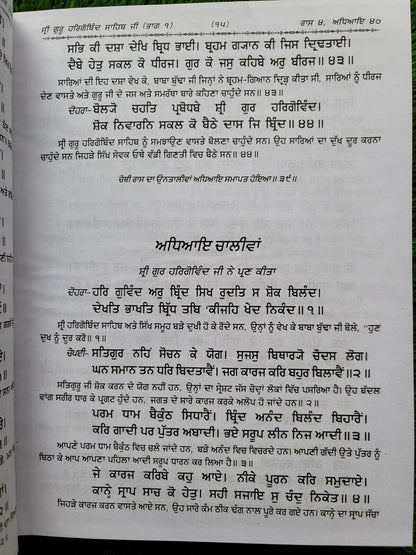 ਸ੍ਰੀ ਗੁਰੂ ਹਰਿਗੋਬਿੰਦ ਸਾਹਿਬ ਜੀ (ਭਾਗ ੧) (੧੫) ਰਾਸ ੪, ਅਧਿਆਇ ੪੦
ਸਭਿ ਕੀ ਦਸ਼ਾ ਦੇਖਿ ਬ੍ਰਿਧ ਭਾਈ। ਬ੍ਰਹਮ ਗ੍ਯਾਨ ਕੀ ਜਿਸ ਦ੍ਰਿਢਤਾਈ।
ਦੈਬੇ ਹੇਤੁ ਸਕਲ ਕੋ ਧੀਰਜ। ਗੁਰ ਕੋ ਜਸੁ ਕਹਿਬੇ ਅਰੁ ਬੀਰਜ॥੪੩॥
ਸਾਰਿਆਂ ਦੀ ਇਹ ਦਸ਼ਾ ਵੇਖ ਕੇ, ਬਾਬਾ ਬੁੱਢਾ ਜੀ ਜਿਨ੍ਹਾਂ ਨੇ ਬ੍ਰਹਮ-ਗਿਆਨ ਦ੍ਰਿੜ੍ਹ ਕੀਤਾ ਸੀ, ਸਾਰਿਆਂ ਨੂੰ ਧੀਰਜ
ਦੇਣ ਵਾਸਤੇ ਅਤੇ ਗੁਰੂ ਜੀ ਦੇ ਜਸ ਅਤੇ ਸਮਰੱਥਾ ਬਾਰੇ ਕਹਿਣਾ ਚਾਹੁੰਦੇ ਸਨ॥੪੩॥
ਦੋਹਰਾ- ਬੋਲ੍ਯੋ ਚਹਤਿ ਪ੍ਰਬੋਧਬੇ ਸ਼੍ਰੀ ਗੁਰ ਹਰਿਗੋਵਿੰਦ।
ਸ਼ੋਕ ਨਿਵਾਰਨਿ ਸਕਲ ਕੋ ਬੈਠੇ ਦਾਸ ਜਿ ਬ੍ਰਿੰਦ॥੪੪॥
ਸ੍ਰੀ ਗੁਰੂ ਹਰਗੋਬਿੰਦ ਸਾਹਿਬ ਜੀ ਨੂੰ ਸਮਝਾਉਣ ਵਾਸਤੇ ਬੋਲਣਾ ਚਾਹੁੰਦੇ ਸਨ। ਉਹ ਸਾਰਿਆਂ ਦਾ ਦੁੱਖ ਦੂਰ ਕਰਨਾ
ਚਾਹੁੰਦੇ ਸਨ ਜਿਹੜੇ ਸਿੱਖ ਸੇਵਕ ਓਥੇ ਵੱਡੀ ਗਿਣਤੀ ਵਿਚ ਬੈਠੇ ਸਨ॥੪੪॥
ਚੌਥੀ ਰਾਸ ਦਾ ਉਨਤਾਲੀਵਾਂ ਅਧਿਆਇ ਸਮਾਪਤ ਹੋਇਆ॥੩੯॥
ਅਧਿਆਇ ਚਾਲੀਵਾਂ
ਸ਼੍ਰੀ ਗੁਰ ਹਰਗੋਵਿੰਦ ਜੀ ਨੇ ਪ੍ਰਣ ਕੀਤਾ
ਦੋਹਰਾ- ਹਰਿ ਗੁਵਿੰਦ ਅਰੁ ਬ੍ਰਿੰਦ ਸਿਖ ਰੁਦਤਿ ਸ ਸ਼ੋਕ ਬਿਲੰਦ।
ਦੇਖਤਿ ਭਾਖਤਿ ਬ੍ਰਿੱਧ ਤਬਿ 'ਕੀਜਹਿ ਖੇਦ ਨਿਕੰਦ॥੧॥
ਸ੍ਰੀ ਹਰਿਗੋਬਿੰਦ ਸਾਹਿਬ ਅਤੇ ਸਿੱਖ ਸਮੂਹ ਬੜੇ ਦੁਖੀ ਹੋ ਕੇ ਰੋਂਦੇ ਸਨ, ਉਨ੍ਹਾਂ ਨੂੰ ਵੇਖ ਕੇ ਬਾਬਾ ਬੁੱਢਾ ਜੀ ਬੋਲੇ, "ਹੁਣ
ਦੁਖ ਨੂੰ ਦੂਰ ਕਰੋ॥੧॥
ਚੌਪਈ- ਸਤਿਗੁਰ ਨਹਿਂ ਸੋਚਨ ਕੇ ਯੋਗ। ਸੁਜਸੁ ਬਿਥਾਰ੍ਯੋ ਚੌਦਸ ਲੋਗ।
ਘਨ ਸਮਾਨ ਤਨ ਧਰਿ ਬਿਦਤਾਵੈਂ। ਜਗ ਕਾਰਜ ਕਰਿ ਬਹੁਰ ਬਿਲਾਵੈਂ॥੨॥
ਸਤਿਗੁਰੂ ਜੀ ਸ਼ੋਕ ਕਰਨ ਦੇ ਯੋਗ ਨਹੀਂ ਹਨ, ਉਨ੍ਹਾਂ ਦਾ ਸ੍ਰੇਸ਼ਟ ਜੱਸ ਚੌਦ੍ਹਾਂ ਲੋਕਾਂ ਵਿੱਚ ਪਸਰਿਆ ਹੈ। ਉਹ ਬੱਦਲ
ਵਾਂਗ ਸਰੀਰ ਧਾਰ ਕੇ ਪ੍ਰਗਟ ਹੁੰਦੇ ਹਨ, ਜਗਤ ਦੇ ਸਾਰੇ ਕਾਰਜ ਕਰਕੇ ਅਲੋਪ ਹੋ ਜਾਂਦੇ ਹਨ॥੨॥
ਪਰਮ ਧਾਮ ਬੈਕੁੰਠ ਸਿਧਾਰੈਂ। ਬ੍ਰਿੰਦ ਅਨੰਦ ਬਿਲੰਦ ਬਿਹਾਰੈਂ।
ਕਰਿ ਗਾਦੀ ਪਰ ਪੁੱਤਰ ਅਬਾਦੀ। ਭਏ ਸਰੂਪ ਲੀਨ ਨਿਜ ਆਦੀ॥੩॥
ਆਪਣੇ ਪਰਮ ਧਾਮ ਬੈਕੁੰਠ ਵਿਚ ਚਲੇ ਜਾਂਦੇ ਹਨ, ਬੜੇ ਅਨੰਦ ਵਿਚ ਵਿਚਰਦੇ ਹਨ। ਆਪਣੀ ਗੱਦੀ ਉਤੇ ਪੁੱਤਰ ਨੂੰ
ਬਿਠਾ ਕੇ ਆਪ ਆਪਣਾ ਪਹਿਲਾ ਆਦੀ ਸਰੂਪ ਧਾਰਨ ਕਰ ਲਿਆ ਹੈ॥੩॥
ਜੇ ਕਾਰਜ ਕਰਿਬੇ ਕਹੁ ਆਏ। ਨੀਕੇ ਪੂਰਨ ਕਰਿ ਸਮੁਦਾਏ।
ਕਾਨ੍ਹੇ ਸ੍ਰਾਪ ਸਾਚ ਕੋ ਹੇਤੁ। ਸਹੀ ਸਜਾਇ ਸੁ ਚੰਦੁ ਨਿਕੇਤ॥੪॥
ਜਿਹੜੇ ਕਾਰਜ ਕਰਨ ਵਾਸਤੇ ਆਏ ਸਨ, ਉਹ ਸਾਰੇ ਕੰਮ ਠੀਕ ਢੰਗ ਨਾਲ ਪੂਰੇ ਕਰ ਗਏ ਹਨ। ਕਾਨ੍ਹੇ ਦਾ ਸ੍ਰਾਪ ਸੱਚਾ